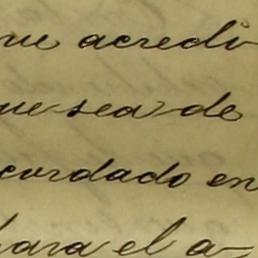 que acredi
que sea de
cordado en
para el a-